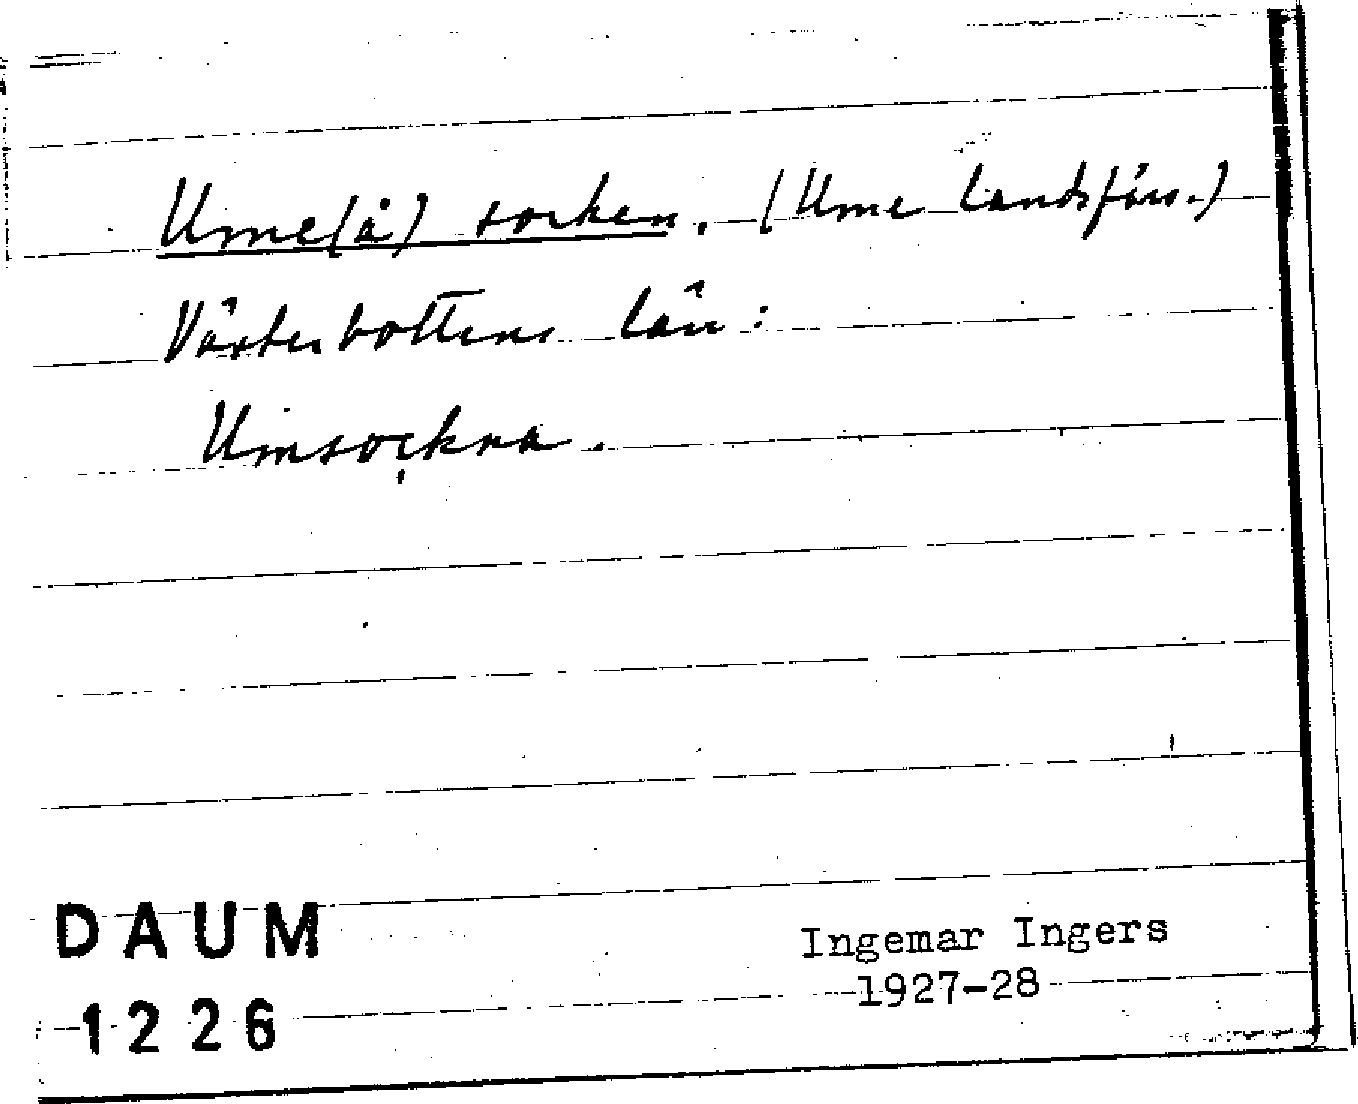 Ume(å) socken. (Ume landsförs.)
Västerbottens län:
Umsọckna.
DAUM
1226
Ingemar Ingers
1927-28